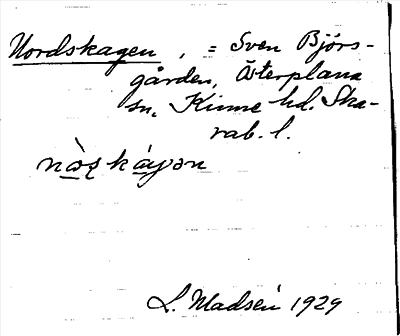 Nordskagen, = Sven Björs-
gården, Österplana
sn, Kinne hd. Ska-
rab. l.
nòs̱kágən
L. Madsén 1929